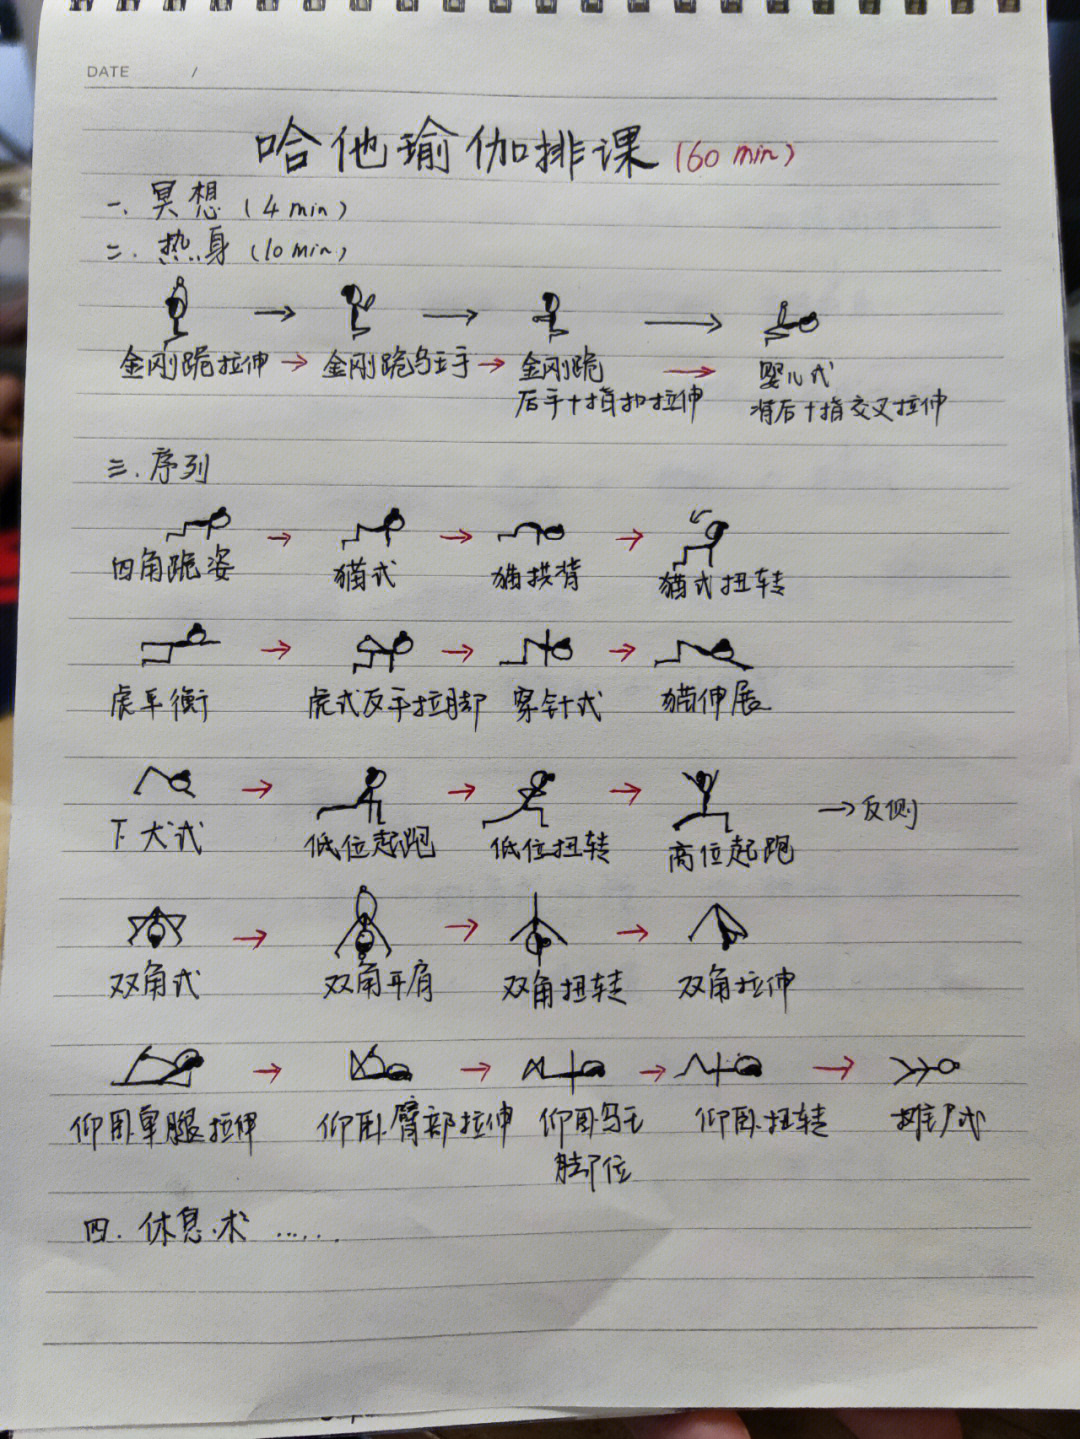 DATE /
哈他瑜伽排课 (60 min)
一、冥想 (4 min)
二、热身 (10 min)
→ → →
金刚跪拉伸 → 金刚跪鸟王手 → 金刚跪 → 婴儿式
后手十指扣拉伸 背后十指交叉拉伸
三、序列
→ → →
四角跪姿 猫式 猫拱背 猫式扭转
→ → →
虎平衡 虎式反手拉脚 穿针式 猫伸展
→ → → → 反侧
下犬式 低位起跑 低位扭转 高位起跑
→ → →
双角式 双角开肩 双角扭转 双角拉伸
→ → → →
仰卧单腿拉伸 仰卧臀部拉伸 仰卧鸟王 仰卧扭转 摊尸式
脚位
四、休息术 ......